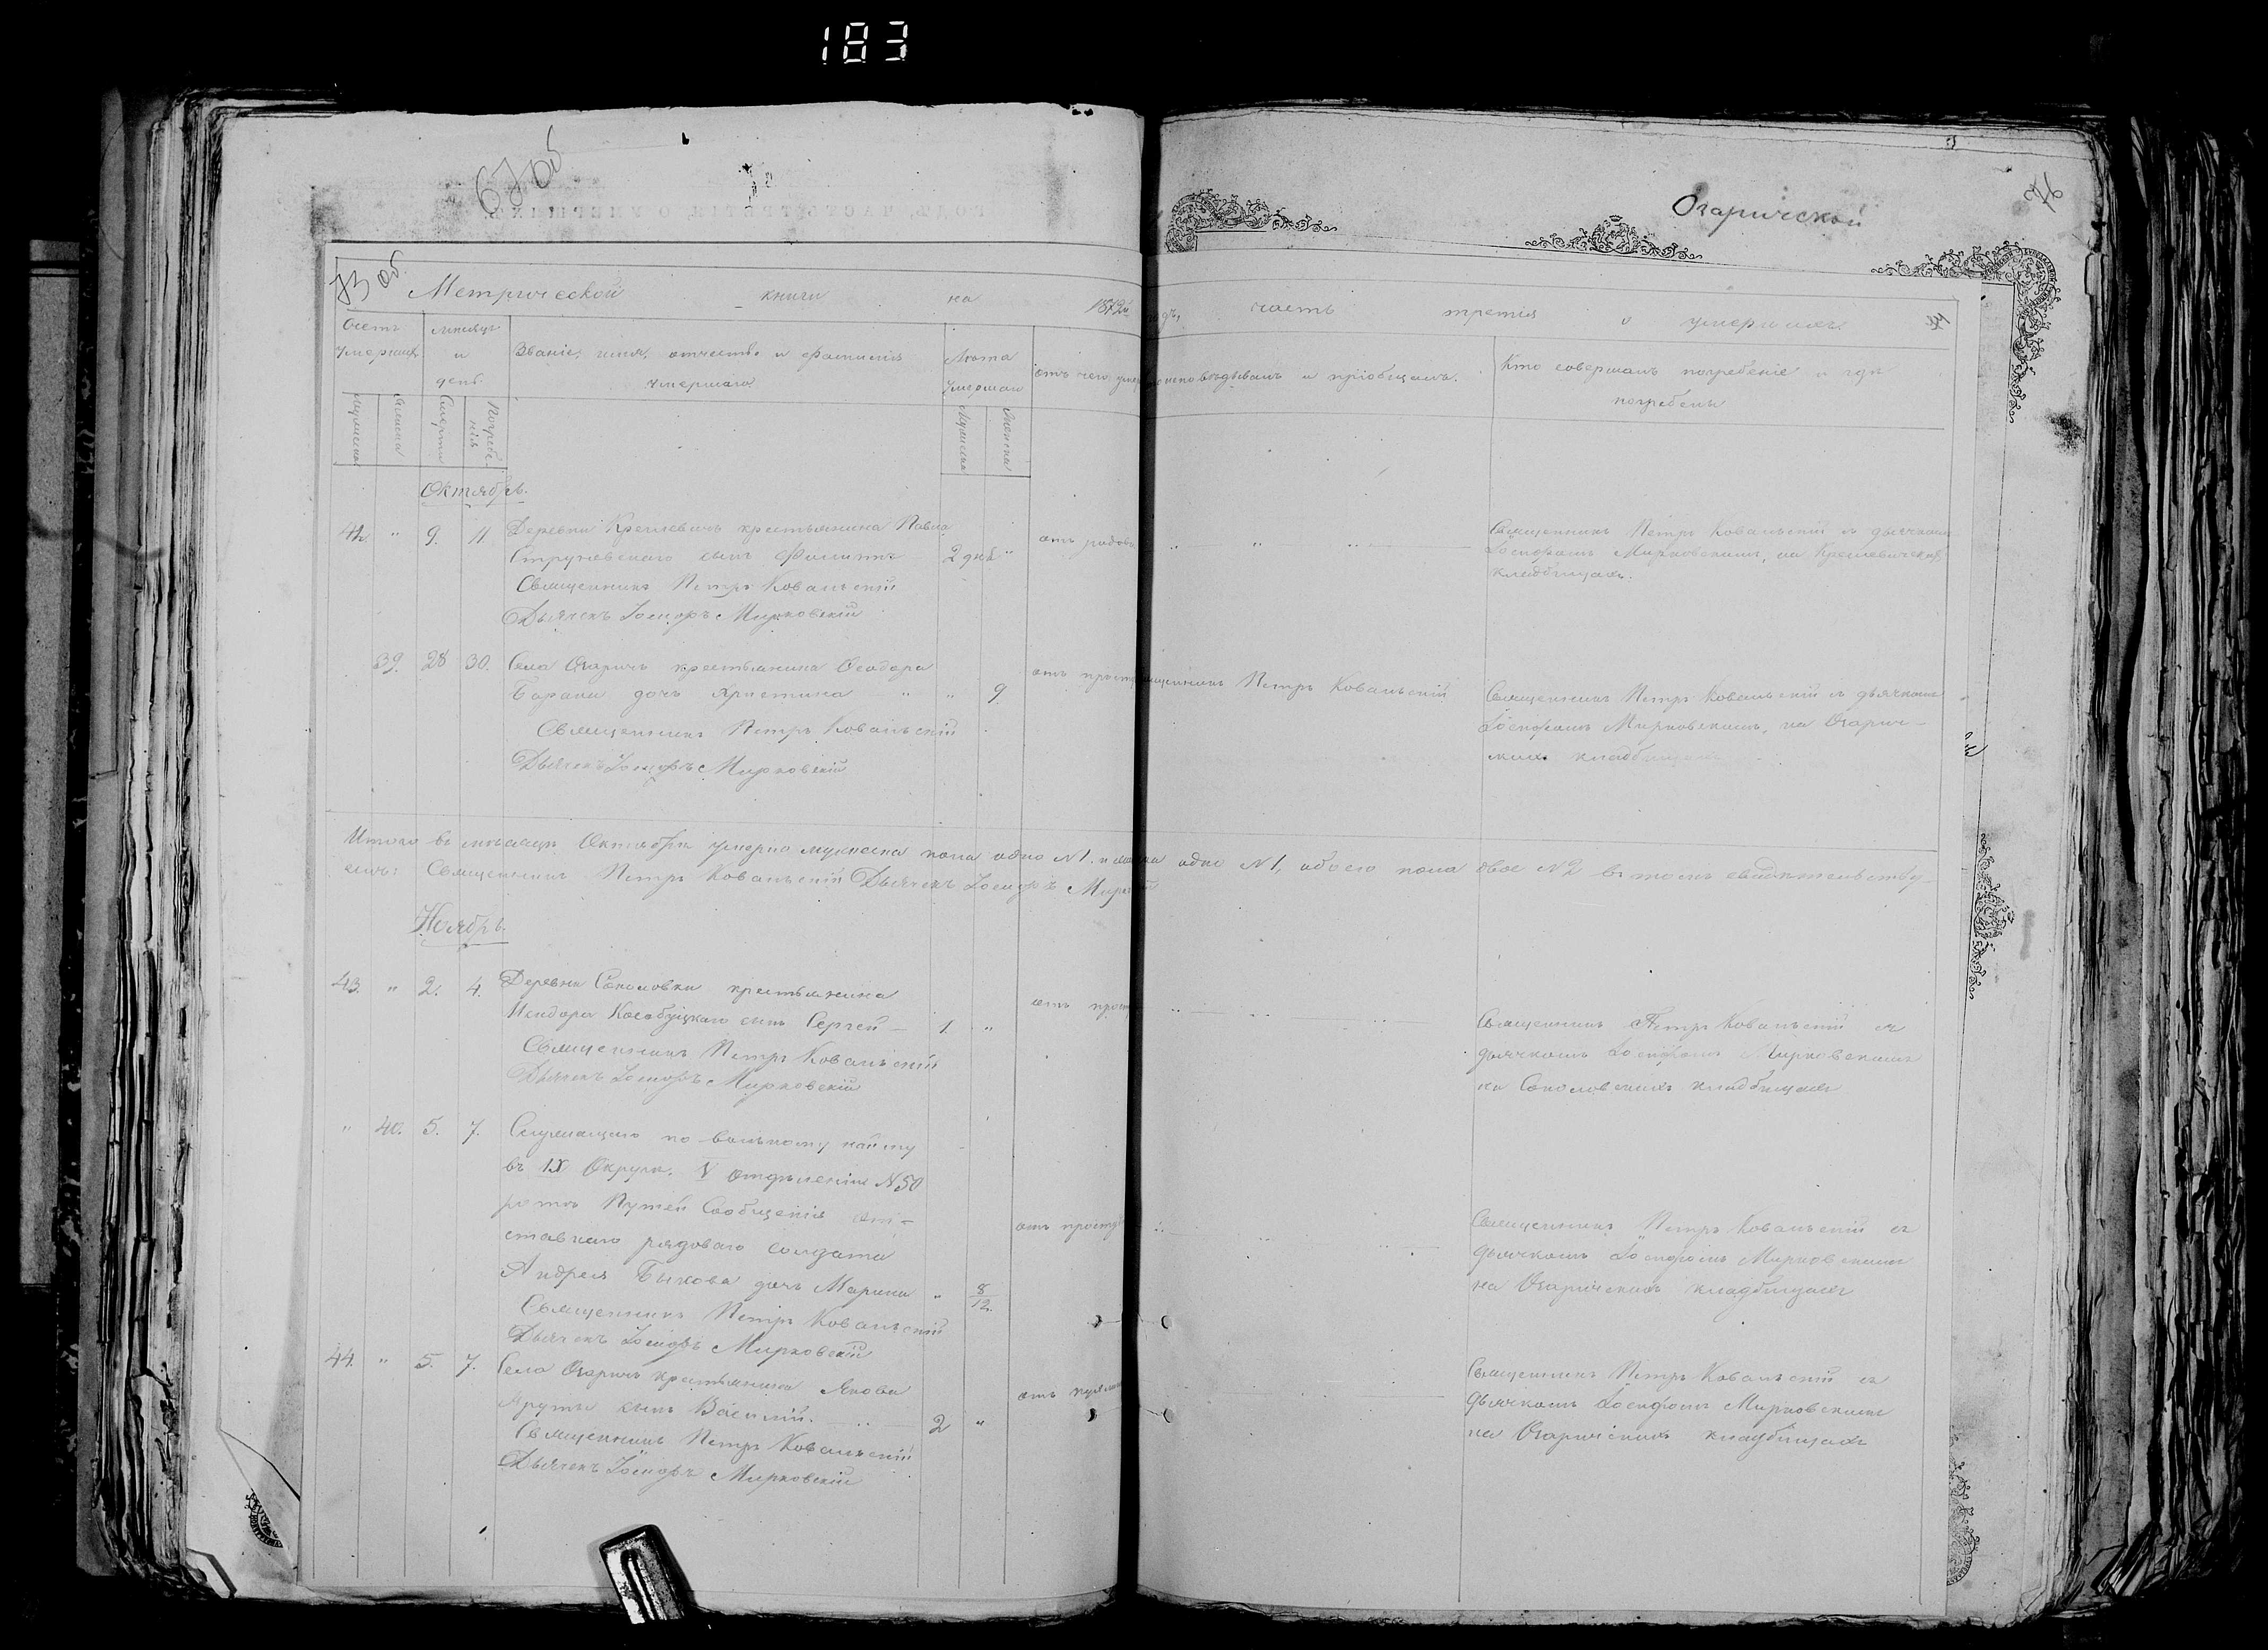 183
67 об
Огаричской
76
73 об.
Метрической книги на 1872й годъ, часть третія о умершихъ.
Счетъ умершихъ
мѣсяцъ и день
Званіе, имя, отчество и фамилія умершаго
Лѣта умершаго
отъ чего умеръ
исповѣдывалъ и пріобщалъ.
Кто совершалъ погребеніе и гдѣ погребены
Мужеска
Женска
Смерти
Погребенія
Мужеска
Женска
Октябрь.
42. " 9. 11. Деревни Креплевичъ крестьянина Павла
сынъ Филиппъ 2 дней "
Священникъ Петръ Ковальскій
Дьячекъ Іосифъ Мирковскій
отъ родов
Священникъ Петръ Ковальскій съ дьячкомъ
Іосифомъ Мирковскимъ, на
кладбищахъ.
39. 28 30. Села Огаричъ крестьянина Ѳеодора
Барана дочь Христина " " 9.
Священникъ Петръ Ковальскій
Дьячекъ Іосифъ Мирковскій
отъ прост
Священникъ Петръ Ковальскій
Священникъ Петръ Ковальскій съ дьячкомъ
Іосифомъ Мирковскимъ, на Огарич-
скихъ кладбищахъ
Итого въ мѣсяцѣ Октябрѣ умерло мужеска пола одно №1. и женска одно №1, обоего пола двое №2 въ томъ свидѣтельству-
емъ: Священникъ Петръ Ковальскій Дьячекъ Іосифъ Мирковскій
Ноябрь.
43. " 2. 4. Деревни Соколовки крестьянина
сынъ Сергей — 1. "
Священникъ Петръ Ковальскій
Дьячекъ Іосифъ Мирковскій
отъ прост
Священникъ Петръ Ковальскій съ
дьячкомъ Іосифомъ Мирковскимъ
на Соколовскихъ кладбищахъ
" 40. 5. 7. Служащаго по вольному найму
въ IX Округѣ. V отдѣленіи №50
роты Путей Сообщенія от-
ставнаго рядоваго солдата
Андрея Быкова дочь Марина " 8/12.
Священникъ Петръ Ковальскій
Дьячекъ Іосифъ Мирковскій
отъ просту
Священникъ Петръ Ковальскій съ
дьячкомъ Іосифомъ Мирковскимъ
на Огаричскихъ кладбищахъ
44. " 5. 7. Села Огаричъ крестьянина Якова
сынъ Василій. 2 "
Священникъ Петръ Ковальскій
Дьячекъ Іосифъ Мирковскій
отъ
Священникъ Петръ Ковальскій съ
дьячкомъ Іосифомъ Мирковскимъ
на Огаричскихъ кладбищахъ